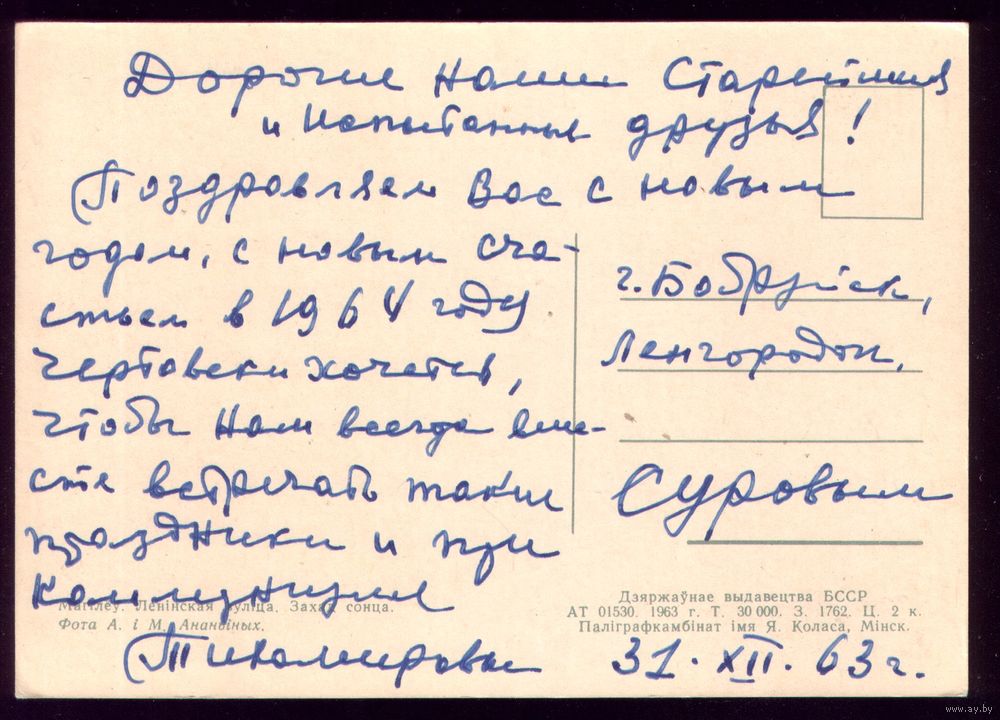 Дорогие наши Старейшие
и испытанные друзья!
Поздравляем Вас с новым
годом, с новым сча-
стьем в 1964 году
Чертовски хочется,
чтобы нам всегда вме-
сте встречать такие
праздники и при
Коммунизме
Тихомировы
г. Бобруйск,
Ленгородок,
Суровым
31. XII. 63 г.
Магілеў. Ленінская вуліца. Захад сонца.
Фота А. і М. Ананьіных.
Дзяржаўнае выдавецтва БССР
АТ 01530. 1963 г. Т. 30 000. З. 1762. Ц. 2 к.
Паліграфкамбінат імя Я. Коласа, Мінск.
www.ay.by